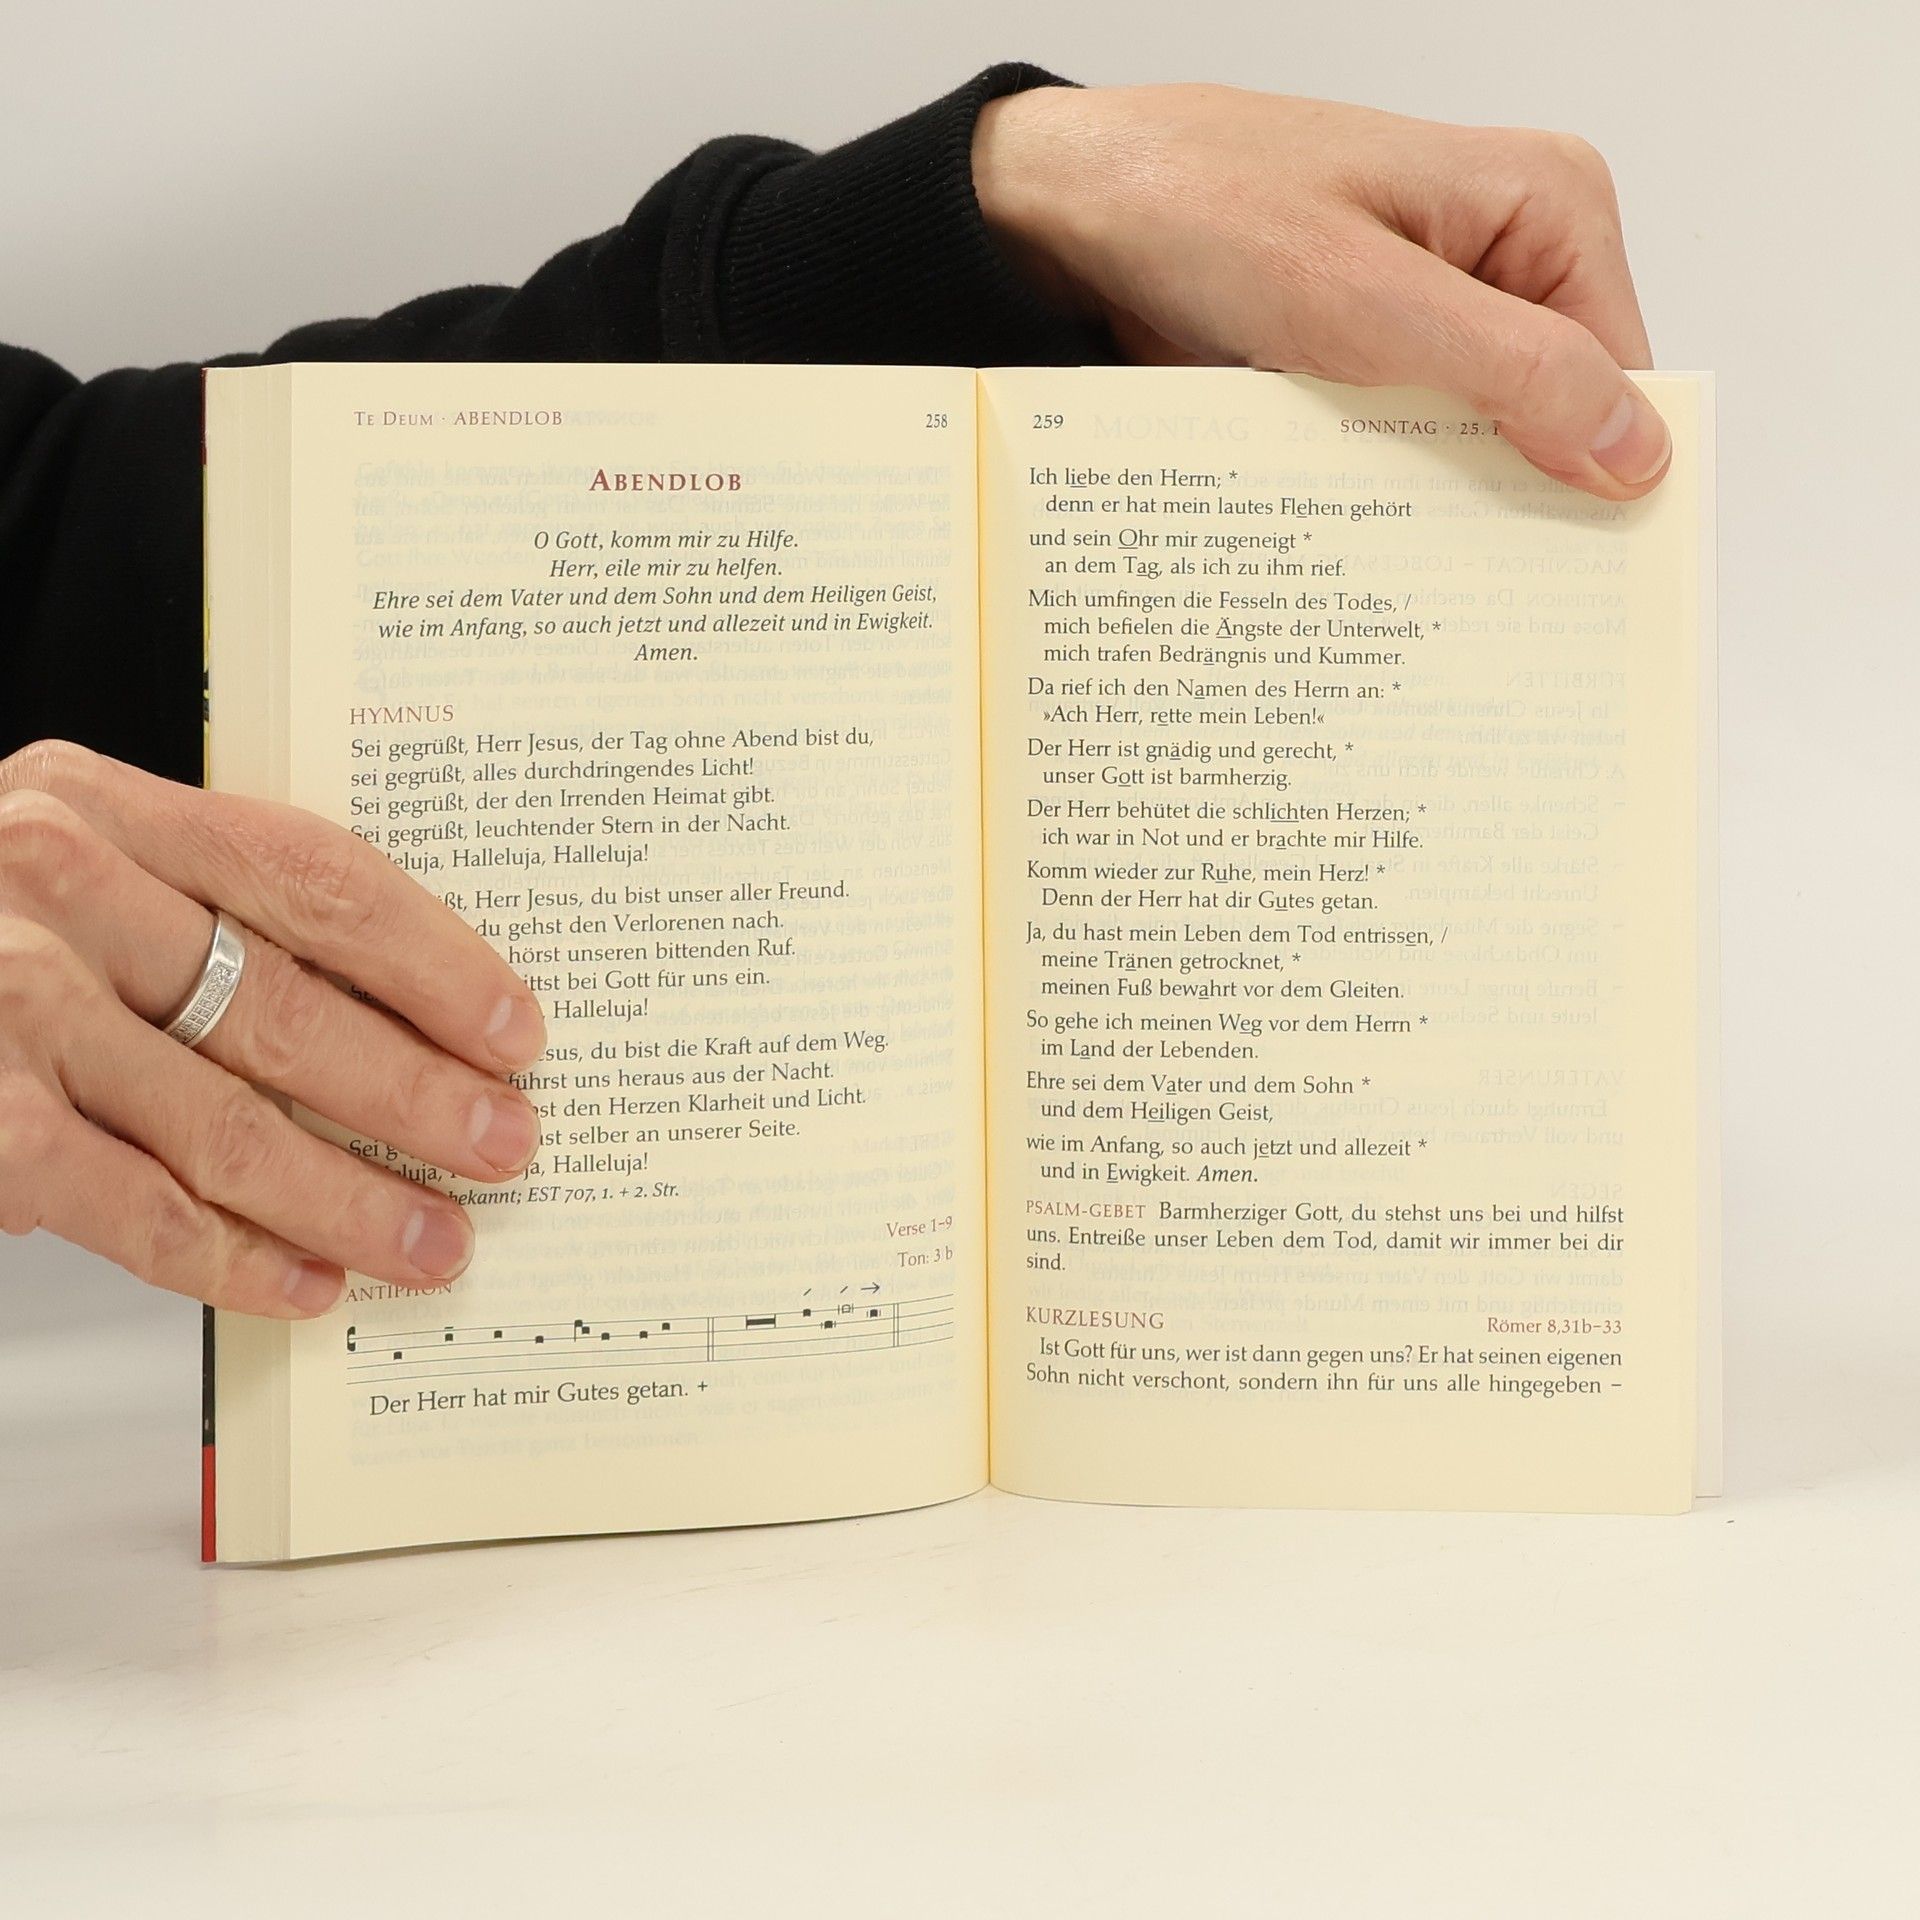 TE DEUM · ABENDLOB 258
ABENDLOB
O Gott, komm mir zu Hilfe.
Herr, eile mir zu helfen.
Ehre sei dem Vater und dem Sohn und dem Heiligen Geist,
wie im Anfang, so auch jetzt und allezeit und in Ewigkeit.
Amen.
HYMNUS
Sei gegrüßt, Herr Jesus, der Tag ohne Abend bist du,
sei gegrüßt, alles durchdringendes Licht!
Sei gegrüßt, der den Irrenden Heimat gibt.
Sei gegrüßt, leuchtender Stern in der Nacht.
Halleluja, Halleluja!
Herr Jesus, du bist unser aller Freund.
du gehst den Verlorenen nach.
hörst unseren bittenden Ruf.
bei Gott für uns ein.
Halleluja!
du bist die Kraft auf dem Weg.
führst uns heraus aus der Nacht.
den Herzen Klarheit und Licht.
Sei selber an unserer Seite.
Halleluja!
EST 707, 1. + 2. Str.
Verse 1–9
Ton: 3 b
ANTIPHON
Der Herr hat mir Gutes getan. +
259 SONNTAG · 25.
Ich liebe den Herrn; *
denn er hat mein lautes Flehen gehört
und sein Ohr mir zugeneigt *
an dem Tag, als ich zu ihm rief.
Mich umfingen die Fesseln des Todes, /
mich befielen die Ängste der Unterwelt, *
mich trafen Bedrängnis und Kummer.
Da rief ich den Namen des Herrn an: *
»Ach Herr, rette mein Leben!«
Der Herr ist gnädig und gerecht, *
unser Gott ist barmherzig.
Der Herr behütet die schlichten Herzen; *
ich war in Not und er brachte mir Hilfe.
Komm wieder zur Ruhe, mein Herz! *
Denn der Herr hat dir Gutes getan.
Ja, du hast mein Leben dem Tod entrissen, /
meine Tränen getrocknet, *
meinen Fuß bewahrt vor dem Gleiten.
So gehe ich meinen Weg vor dem Herrn *
im Land der Lebenden.
Ehre sei dem Vater und dem Sohn *
und dem Heiligen Geist,
wie im Anfang, so auch jetzt und allezeit *
und in Ewigkeit. Amen.
PSALM-GEBET Barmherziger Gott, du stehst uns bei und hilfst
uns. Entreiße unser Leben dem Tod, damit wir immer bei dir
sind.
KURZLESUNG Römer 8,31b–33
Ist Gott für uns, wer ist dann gegen uns? Er hat seinen eigenen
Sohn nicht verschont, sondern ihn für uns alle hingegeben –